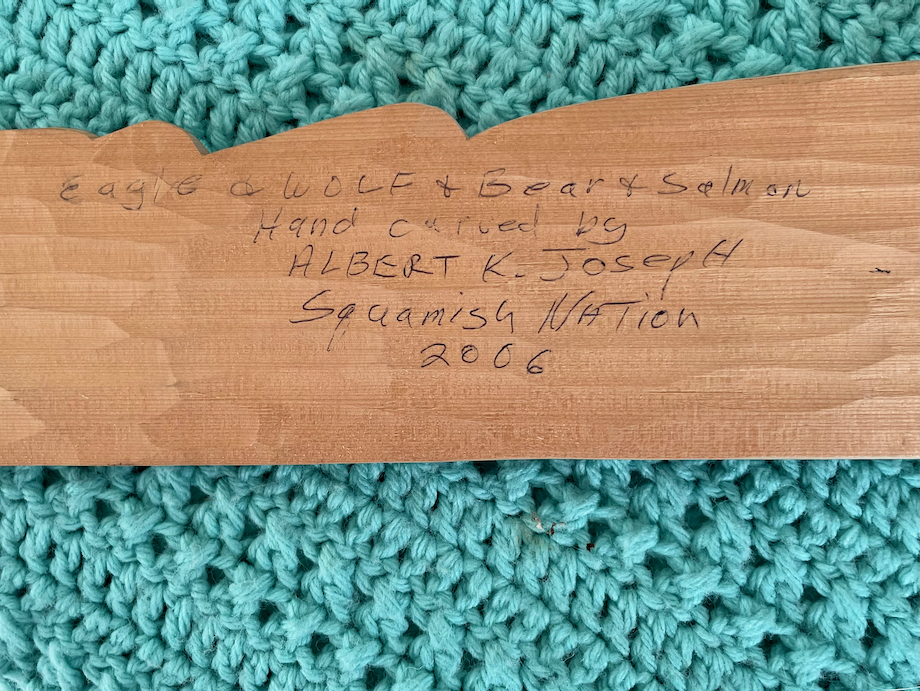 Eagle & WOLF & Bear & Salmon
Hand carved by
ALBERT K. JosepH
Squamish NATion
2006